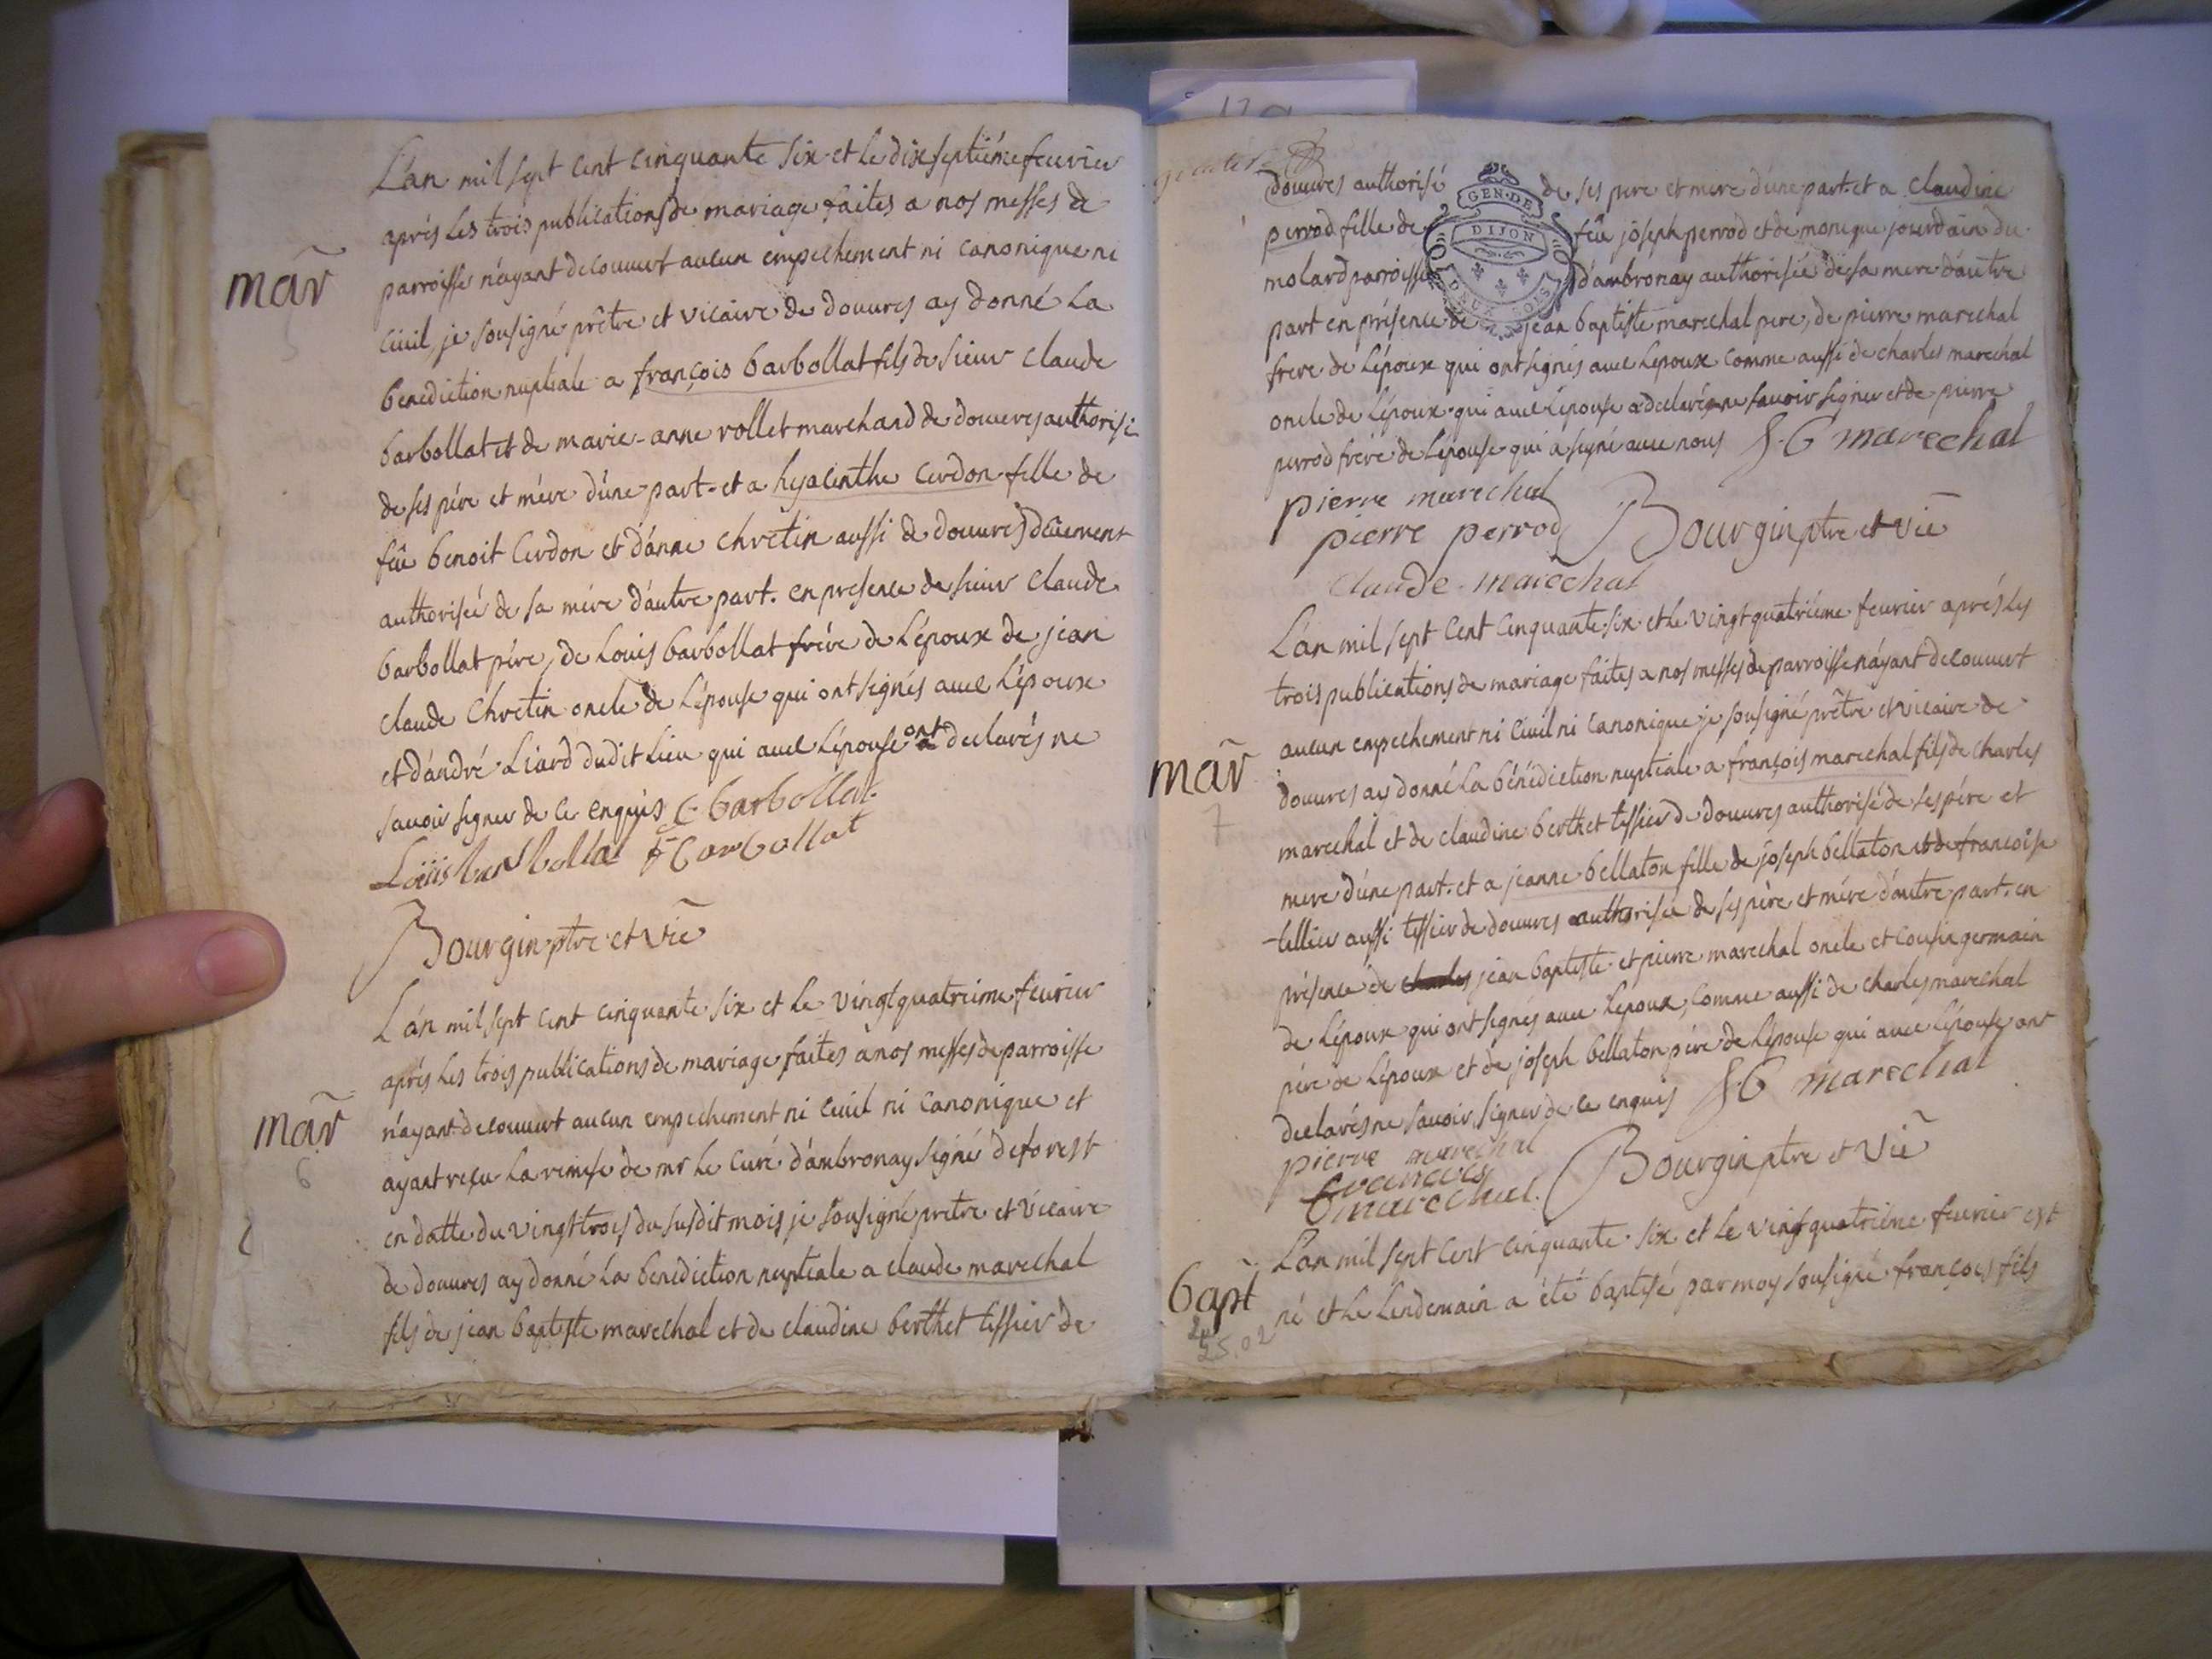 L'an mil sept cent cinquante six et le dix septiéme feurier
aprés les trois publications de mariage faites a nos messes de
mar̃
parroisse n'ayant decouuert aucun empechement ni canonique ni
ciuil, je sousigné prêtre et vicaire de douures ay donné la
benediction nuptiale a françois barbollat fils de sieur claude
barbollat et de marie-anne rollet marchand de douures authorisé
de ses pére et mére d'une part et a hyacinthe cerdon fille de
feu benoit cerdon et d'anne chretin aussi de douures duëment
authorisée de sa mére d'autre part. en presence de sieur claude
barbollat pére, de Louis barbollat frére de l'époux de jean
claude chretin oncle de l'épouse qui ont signés auec l'époux
et d'andré liard dudit lieu qui auec l'épouse ont declarés ne
sauoir signer de ce enquis C barbollat
Loüis barbollat f barbollat
Bourgin ptre et vic̃
L'an mil sept cent cinquante six et le vingt quatriéme feurier
aprés les trois publications de mariage faites a nos messes de parroisse
mar̃
n'ayant decouuert aucun empechement ni ciuil ni canonique et
6
ayant reçu la remise de mr le curé d'ambronay signé deforest
en datte du vingt trois du susdit mois je sousigné pretre et vicaire
de douures ay donné la benediction nuptiale a claude marechal
fils de jean baptiste marechal et de claudine berthet tissier de
douures authorisé de ses pere et mere d'une part et a claudine
GEN. DE
DIJON
DEUX SOLS
perrod fille de feu joseph perrod et de monique jourdain du
molard parroisse d'ambronay authorisée de sa mere d'autre
part en présence de jean baptiste marechal pere, de pierre marechal
frere de l'époux qui ont signés auec lepoux comme aussi de charles marechal
oncle de l'époux qui auec l'épouse a declaré ne sauoir signer et de pierre
perrod frére de l'épouse qui a signé auec nous J. b marechal
pierre marechal
pierre perrod Bourgin ptre et vic̃
claude marechal
L'an mil sept cent cinquante six et le vingt quatriéme feurier aprés les
trois publications de mariage faites a nos messes de parroisse n'ayant decouuert
aucun empechement ni ciuil ni canonique je sousigné prêtre et vicaire de
mar̃
douures ay donné la bénédiction nuptiale a françois marechal fils de charles
7
marechal et de claudine berthet tissier de douures authorisé de ses pére et
mere d'une part. et a jeanne bellaton fille de joseph bellaton et de francoise
tellier aussi tissier de douures authorisée de ses pére et mére d'autre part. en
présence de charles jean baptiste et pierre marechal oncle et cousin germain
de l'époux qui ont signés auec lepoux, comme aussi de charles marechal
pére de l'époux et de joseph bellaton pére de l'épouse qui auec l'épouse ont
declarés ne sauoir signer de ce enquis J b marechal
pierre marechal
francois
marechal. Bourgin ptre et vic̃
L'an mil sept cent cinquante six et le vingt quatriéme feurier est
bapt̃
né et le lendemain a été baptisé par moy sousigné françois fils
25.02